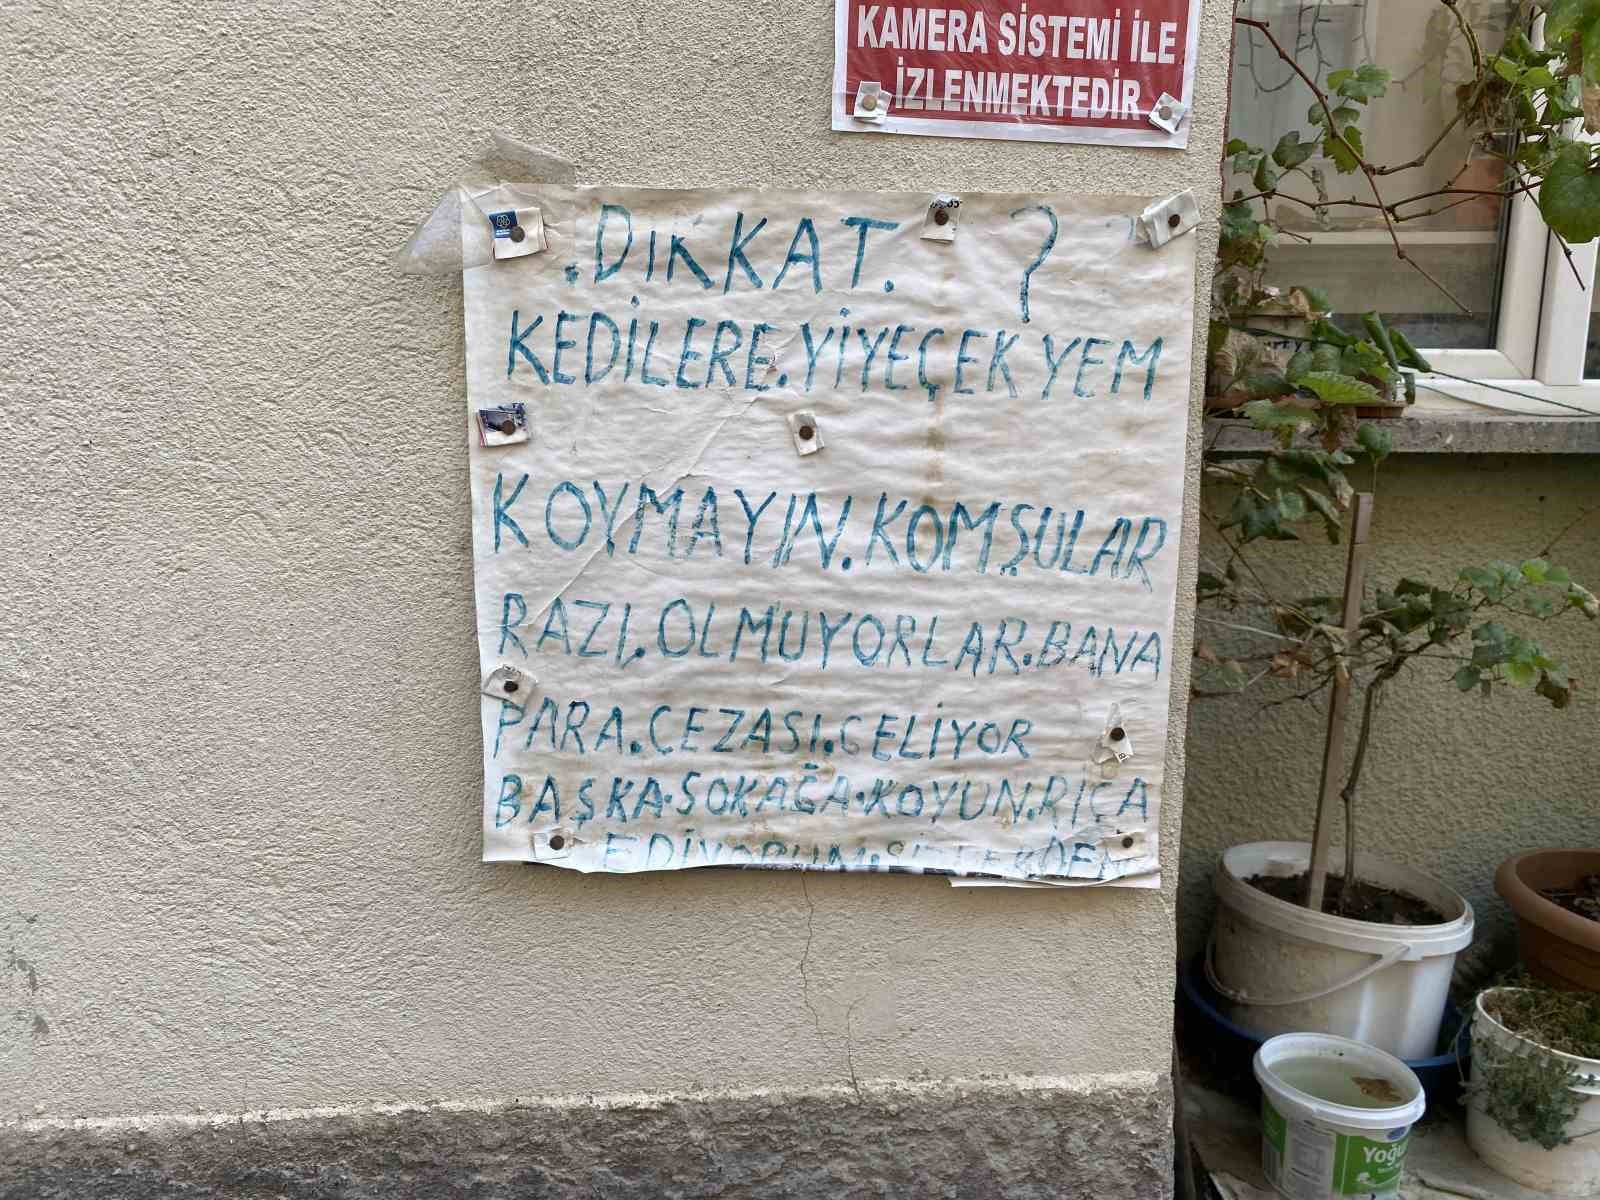 KAMERA SİSTEMİ İLE
İZLENMEKTEDİR
.DIKKAT. ?
KEDİLERE.YİYEÇEK YEM
KOYMAYIN.KOMŞULAR
RAZI.OLMUYORLAR.BANA
PARA.CEZASI.GELİYOR
BAŞKA.SOKAĞA.KOYUN.RİÇA
EDİYORUM.SİZLERDEN
Yoğu